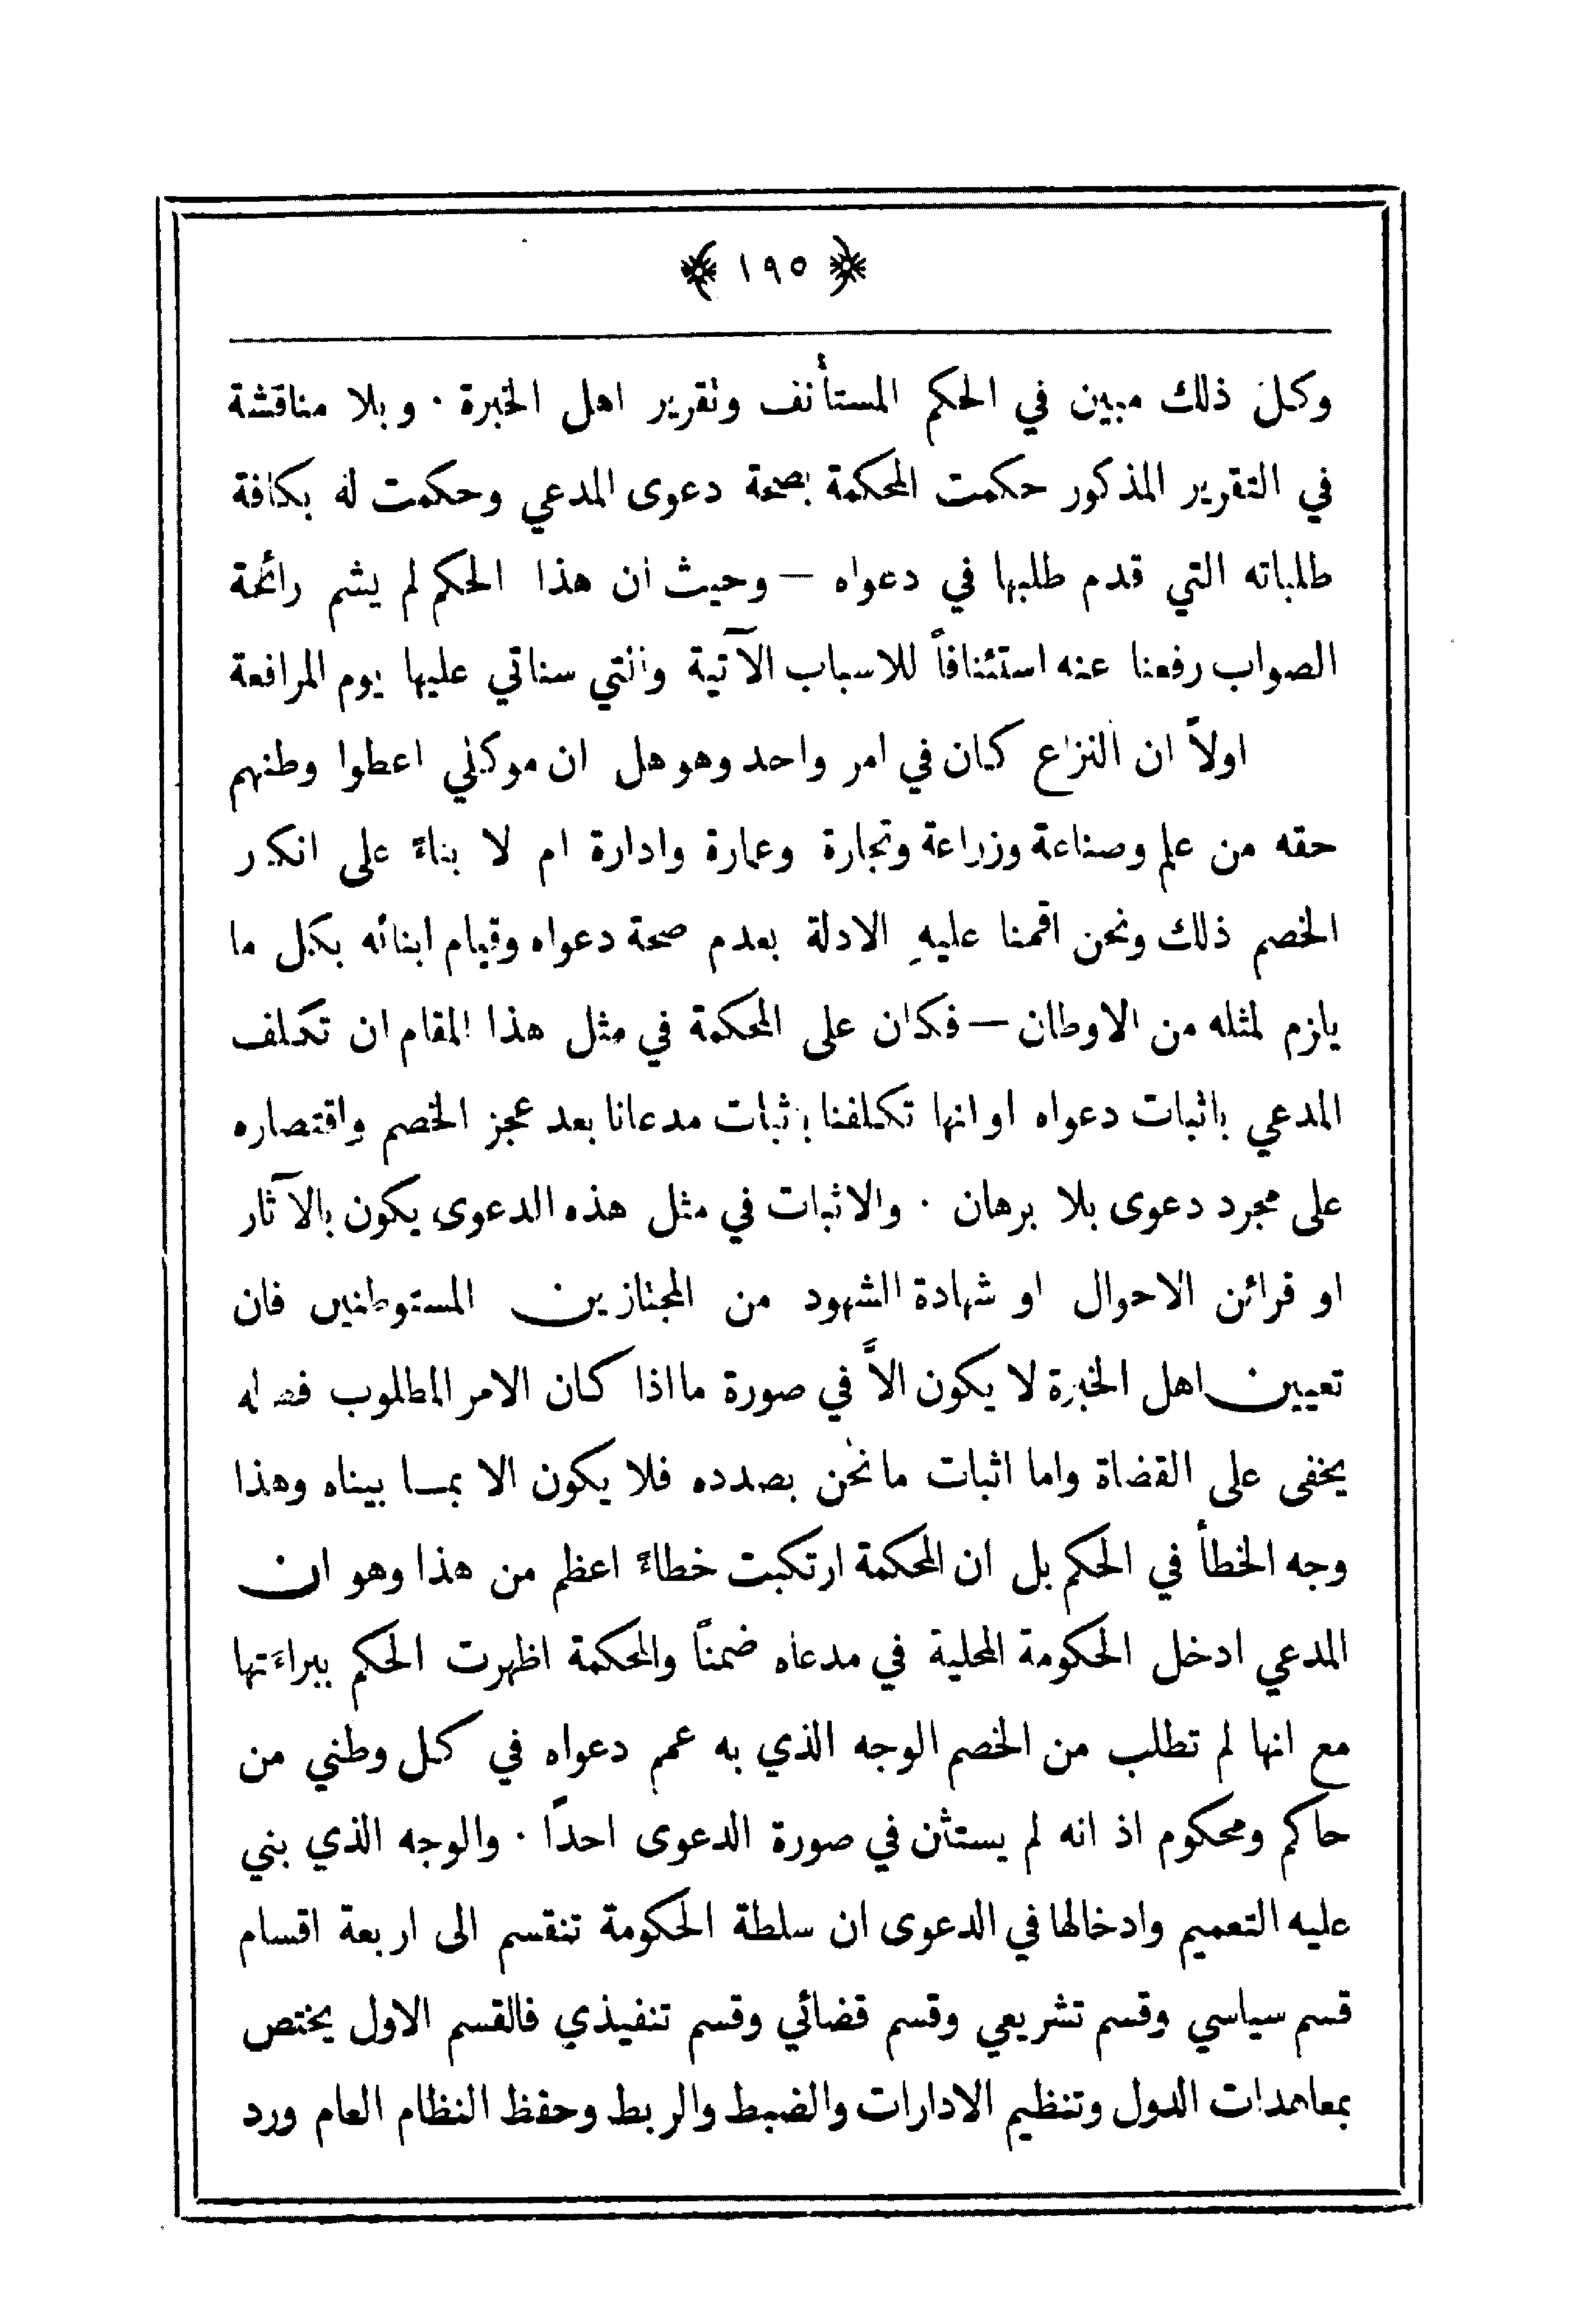 ﴿ ١٩٥ ﴾
وكل ذلك مبين في الحكم المستأنف وتقرير اهل الخبرة ٠ وبلا مناقشة
في التقرير المذكور حكمت المحكمة بصحة دعوى المدعي وحكمت له بكافة
طلباته التي قدم طلبها في دعواه — وحيث ان هذا الحكم لم يشم رائحة
الصواب رفعنا عنه استئنافاً للاسباب الآتية والتي سناتي عليها يوم المرافعة
اولاً ان النزاع كان في امر واحد وهو هل ان موكلي اعطوا وطنهم
حقه من علم وصناعة وزراعة وتجارة وعمارة وادارة ام لا بناءً على انكار
الخصم ذلك ونحن اقمنا عليهِ الادلة بعدم صحة دعواه وقيام ابنائه بكل ما
يلزم لمثله من الاوطان — فكان على المحكمة في مثل هذا المقام ان تكلف
المدعي باثبات دعواه او انها تكلفنا باثبات مدعانا بعد عجز الخصم واقتصاره
على مجرد دعوى بلا برهان ٠ والاثبات في مثل هذه الدعوى يكون بالآثار
او قرائن الاحوال او شهادة الشهود من المجتازين المستوطنين فان
تعيين اهل الخبرة لا يكون الاَّ في صورة ما اذا كان الامر المطلوب فصله
يخفى على القضاة واما اثبات ما نحن بصدده فلا يكون الا بمـا بيناه وهذا
وجه الخطأ في الحكم بل ان المحكمة ارتكبت خطاءً اعظم من هذا وهو ان
المدعي ادخل الحكومة المحلية في مدعاه ضمناً والمحكمة اظهرت الحكم ببراءَتها
مع انها لم تطلب من الخصم الوجه الذي به عمم دعواه في كل وطني من
حاكم ومحكوم اذ انه لم يستثن في صورة الدعوى احداً ٠ والوجه الذي بني
عليه التعميم وادخالها في الدعوى ان سلطة الحكومة تنقسم الى اربعة اقسام
قسم سياسي وقسم تشريعي وقسم قضائي وقسم تنفيذي فالقسم الاول يختص
بمعاهدات الدول وتنظيم الادارات والضبط والربط وحفظ النظام العام ورد